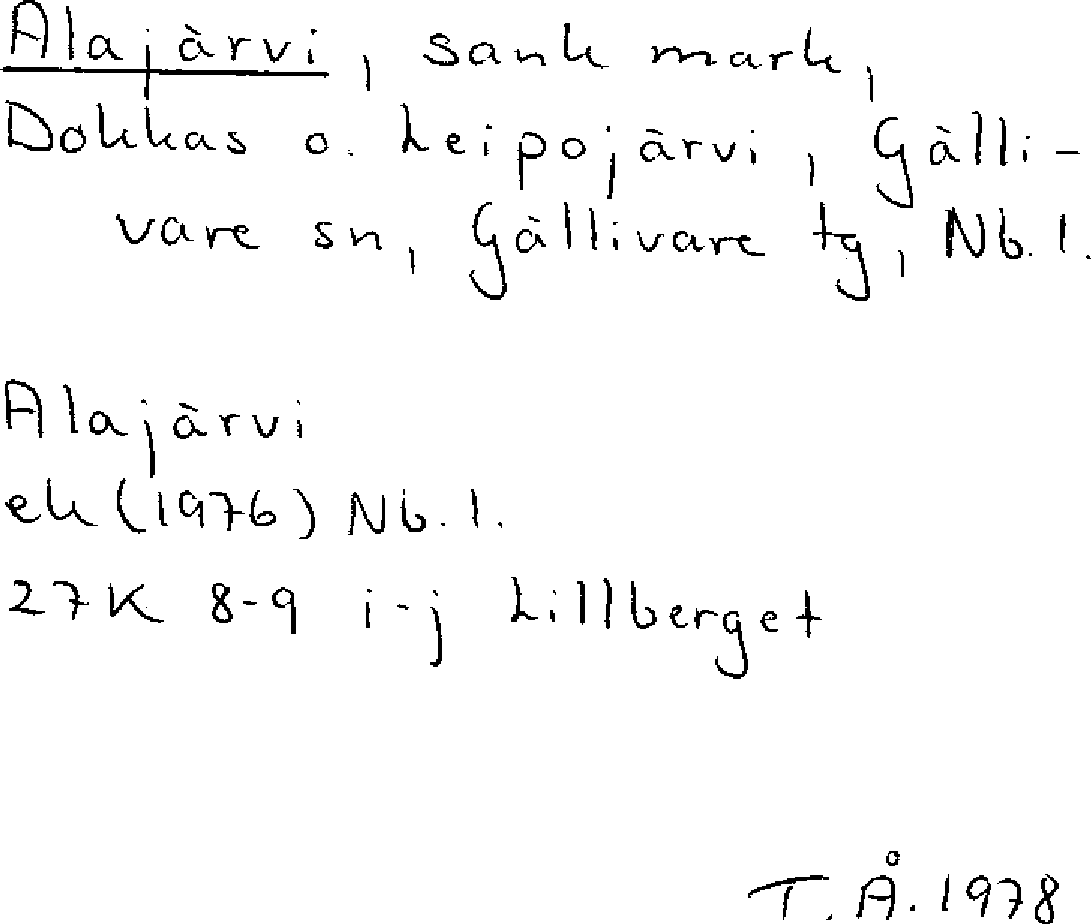 Alajärvi, sank mark,
Dokkas o. Leipojärvi, Gälli-
vare sn, Gällivare tg, Nb. l.
Alajärvi
ek (1976) Nb. l.
27K 8-9 i-j Lillberget
T. Å. 1978